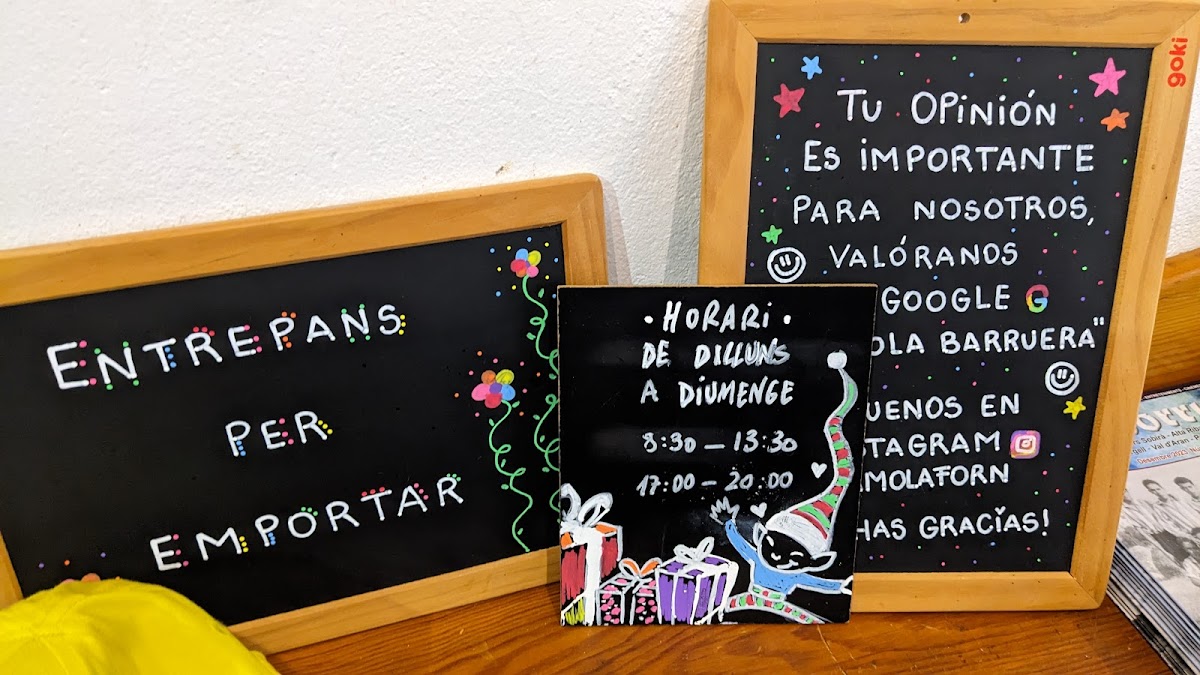 ENTREPANS
PER
EMPORTAR
• HORARI •
DE DILLUNS
A DIUMENGE
8:30 – 13:30
17:00 – 20:00
goki
TU OPINIÓN
ES IMPORTANTE
PARA NOSOTROS,
VALÓRANOS
GOOGLE G
OLA BARRUERA"
UENOS EN
TAGRAM
MOLAFORN
HAS GRACIAS!